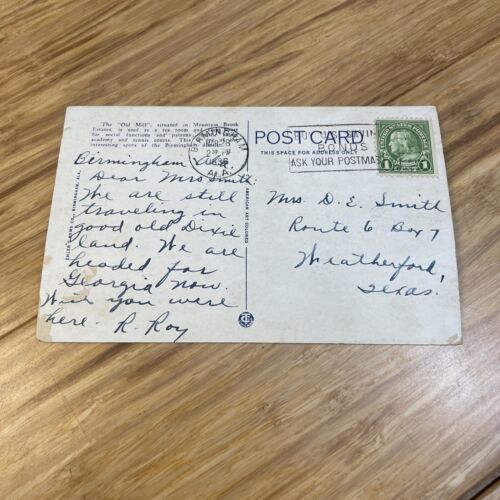 The "Old Mill", situated in Mountain Brook
Estates, is used as a tea room and
for social functions and patrons
academy and tennis courts. This
interesting spots of the Birmingham district.
BIRMINGHAM
PM
1936
ALA.
POST CARD
THIS SPACE FOR ADDRESS ONLY
BONDS
ASK YOUR POSTMAS
UNITED STATES POSTAGE
1 1
Birmingham Ala.
Dear Mrs Smith:
We are still
traveling in
good old Dixie
land. We are
headed for
Georgia now.
Wish you were
here. R. Roy
Mrs. D. E. Smith
Route 6 Box 7
Weatherford,
Texas.
AMERICAN ART COLORED